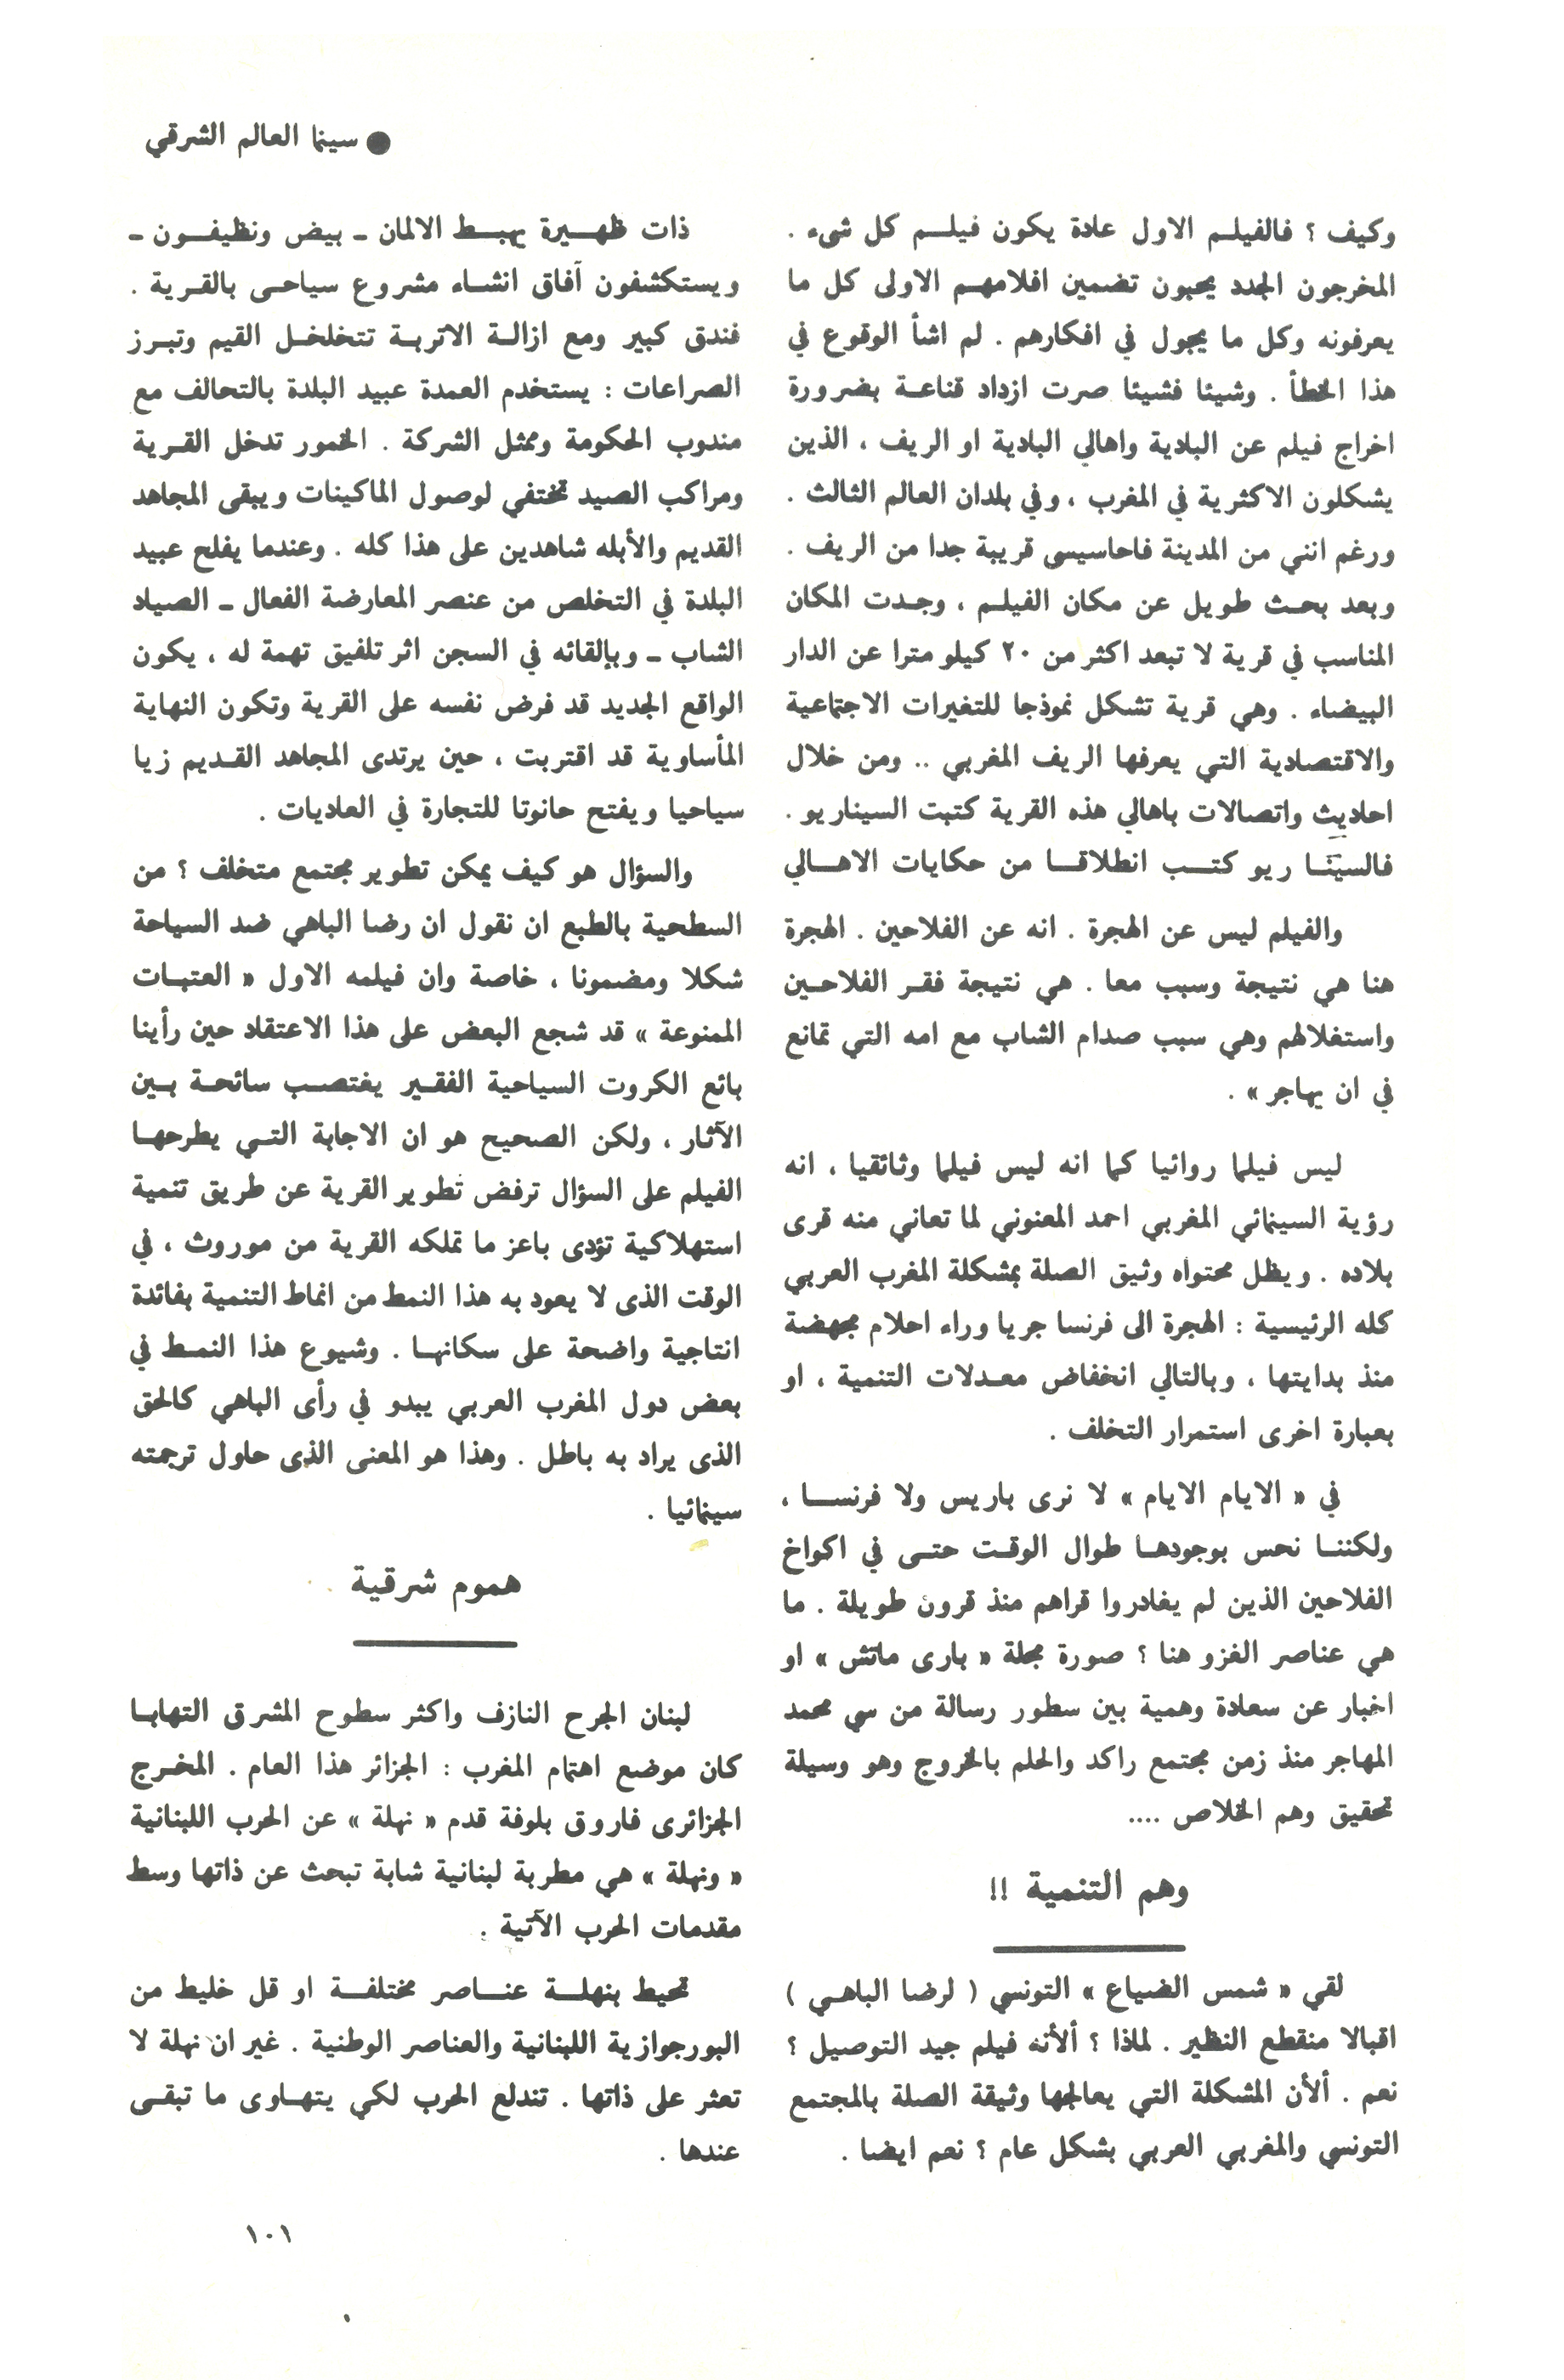 ● سينما العالم الشرقي
وكيف ؟ فالفيلم الاول عادة يكون فيلم كل شىء .
المخرجون الجدد يحبون تضمين افلامهم الاولى كل ما
يعرفونه وكل ما يجول في افكارهم . لم اشأ الوقوع في
هذا الخطأ . وشيئا فشيئا صرت ازداد قناعة بضرورة
اخراج فيلم عن البادية واهالي البادية او الريف ، الذين
يشكلون الاكثرية في المغرب ، وفي بلدان العالم الثالث .
ورغم انني من المدينة فاحاسيسى قريبة جدا من الريف .
وبعد بحث طويل عن مكان الفيلم ، وجدت المكان
المناسب في قرية لا تبعد اكثر من ٢٠ كيلو مترا عن الدار
البيضاء . وهي قرية تشكل نموذجا للتغيرات الاجتماعية
والاقتصادية التي يعرفها الريف المغربي .. ومن خلال
احاديث واتصالات باهالي هذه القرية كتبت السيناريو .
فالسينا ريو كتب انطلاقا من حكايات الاهالي
والفيلم ليس عن الهجرة . انه عن الفلاحين . الهجرة
هنا هي نتيجة وسبب معا . هي نتيجة فقر الفلاحين
واستغلالهم وهي سبب صدام الشاب مع امه التي تمانع
في ان يهاجر » .
ليس فيلما روائيا كما انه ليس فيلما وثائقيا ، انه
رؤية السينمائي المغربي احمد المعنوني لما تعاني منه قرى
بلاده . ويظل محتواه وثيق الصلة بمشكلة المغرب العربي
كله الرئيسية : الهجرة الى فرنسا جريا وراء احلام مجهضة
منذ بدايتها ، وبالتالي انخفاض معدلات التنمية ، او
بعبارة اخرى استمرار التخلف .
في « الايام الايام » لا نرى باريس ولا فرنسا ،
ولكننا نحس بوجودها طوال الوقت حتى في اكواخ
الفلاحين الذين لم يغادروا قراهم منذ قرون طويلة . ما
هي عناصر الغزو هنا ؟ صورة مجلة « بارى ماتش » او
اخبار عن سعادة وهمية بين سطور رسالة من سي محمد
المهاجر منذ زمن مجتمع راكد والحلم بالخروج وهو وسيلة
تحقيق وهم الخلاص ....
وهم التنمية !!
لقي « شمس الضياع » التونسي ( لرضا الباهي )
اقبالا منقطع النظير . لماذا ؟ ألأنه فيلم جيد التوصيل ؟
نعم . ألأن المشكلة التي يعالجها وثيقة الصلة بالمجتمع
التونسي والمغربي العربي بشكل عام ؟ نعم ايضا .
ذات ظهيرة يهبط الالمان ـ بيض ونظيفون ـ
ويستكشفون آفاق انشاء مشروع سياحى بالقرية .
فندق كبير ومع ازالة الاتربة تتخلخل القيم وتبرز
الصراعات : يستخدم العمدة عبيد البلدة بالتحالف مع
مندوب الحكومة وممثل الشركة . الخمور تدخل القرية
ومراكب الصيد تختفي لوصول الماكينات ويبقى المجاهد
القديم والأبله شاهدين على هذا كله . وعندما يفلح عبيد
البلدة في التخلص من عنصر المعارضة الفعال ـ الصياد
الشاب ـ وبإلقائه في السجن اثر تلفيق تهمة له ، يكون
الواقع الجديد قد فرض نفسه على القرية وتكون النهاية
المأساوية قد اقتربت ، حين يرتدى المجاهد القديم زيا
سياحيا ويفتح حانوتا للتجارة في العاديات .
والسؤال هو كيف يمكن تطوير مجتمع متخلف ؟ من
السطحية بالطبع ان نقول ان رضا الباهي ضد السياحة
شكلا ومضمونا ، خاصة وان فيلمه الاول « العتبات
الممنوعة » قد شجع البعض على هذا الاعتقاد حين رأينا
بائع الكروت السياحية الفقير يغتصب سائحة بين
الآثار ، ولكن الصحيح هو ان الاجابة التي يطرحها
الفيلم على السؤال ترفض تطوير القرية عن طريق تنمية
استهلاكية تؤدى باعز ما تملكه القرية من موروث ، في
الوقت الذى لا يعود به هذا النمط من انماط التنمية بفائدة
انتاجية واضحة على سكانها . وشيوع هذا النمط في
بعض دول المغرب العربي يبدو في رأى الباهي كالحق
الذى يراد به باطل . وهذا هو المعنى الذى حاول ترجمته
سينمائيا .
هموم شرقية
لبنان الجرح النازف واكثر سطوح المشرق التهابا
كان موضع اهتمام المغرب : الجزائر هذا العام . المخرج
الجزائرى فاروق بلوفة قدم « نهلة » عن الحرب اللبنانية
« ونهلة » هي مطربة لبنانية شابة تبحث عن ذاتها وسط
مقدمات الحرب الآتية .
تحيط بنهلة عناصر مختلفة او قل خليط من
البورجوازية اللبنانية والعناصر الوطنية . غير ان نهلة لا
تعثر على ذاتها . تندلع الحرب لكي يتهاوى ما تبقى
عندها .
١٠١